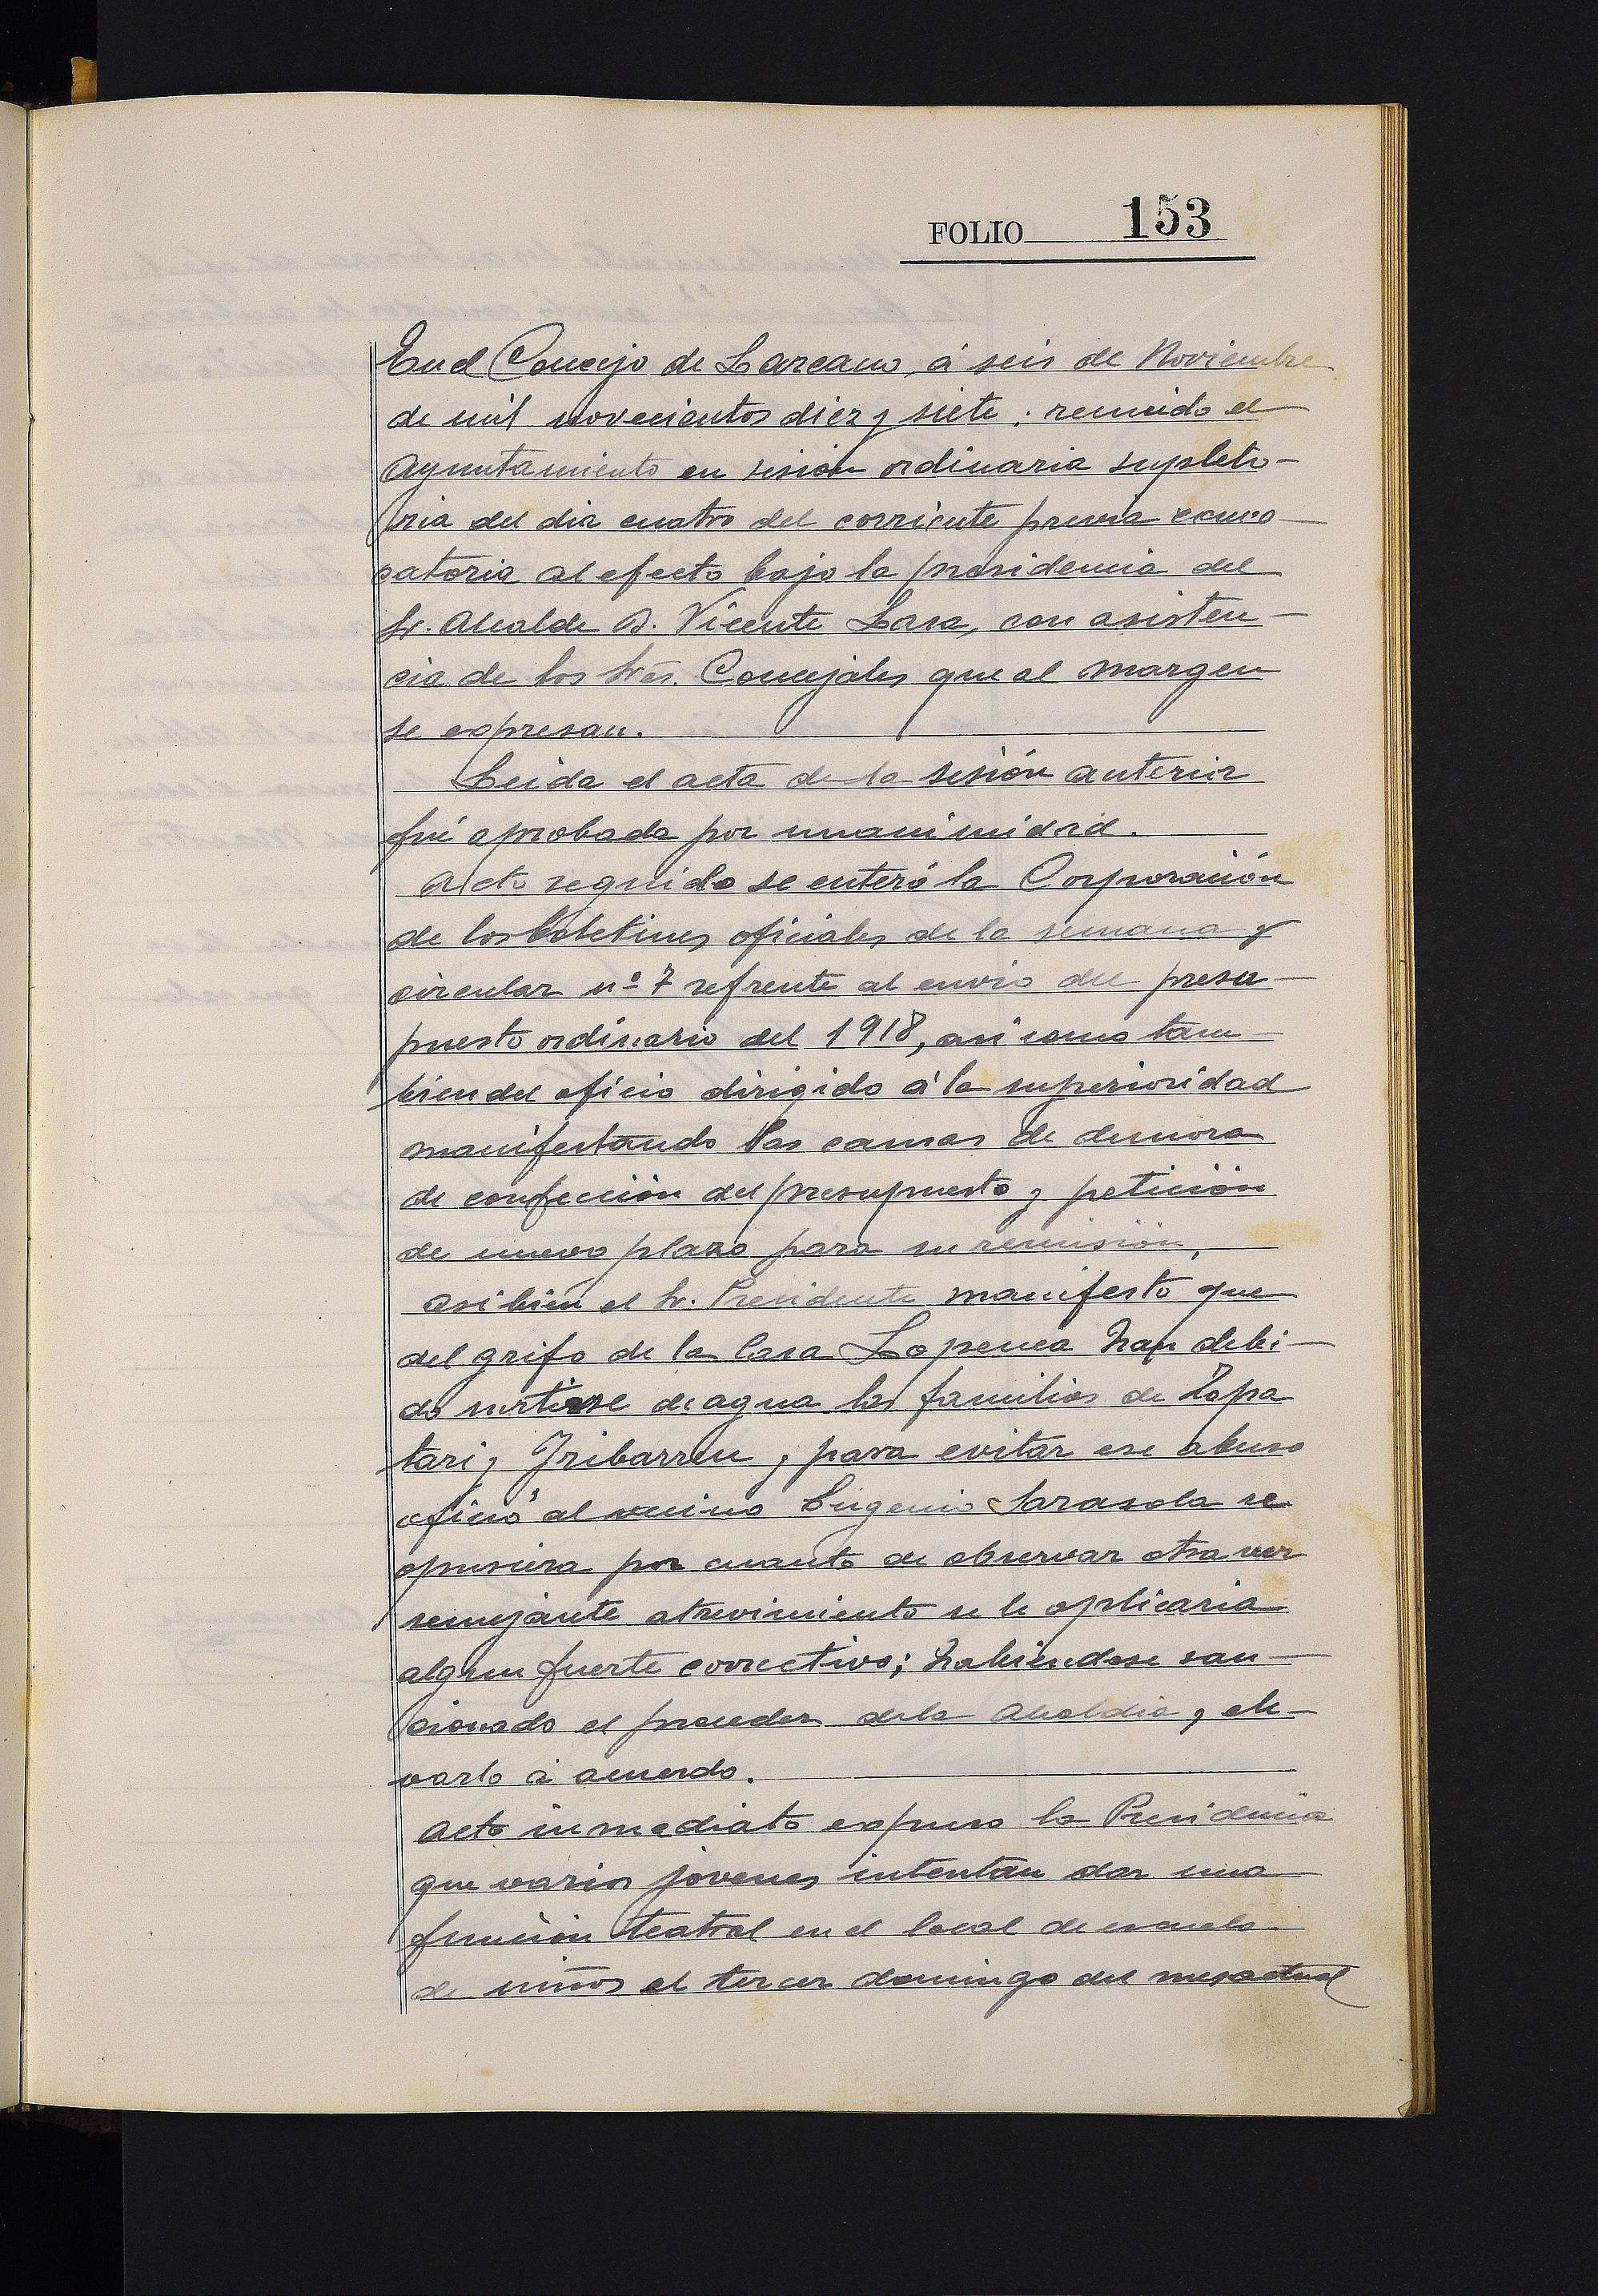 FOLIO 153
En el Concejo de Lazcano, á seis de Noviembre
de mil novecientos diez y siete: reunido el
Ayuntamiento en sesión ordinaria supleto-
ria del dia cuatro del corriente previa convo-
catoria al efecto bajo la presidencia del
Sr. Alcalde D. Vicente Lasa, con asisten-
cia de los Sres. Concejales que al margen
se expresan.
Leida el acta de la sesión anterior
fué aprobada por unanimidad.
Acto seguido se enteró la Corporación
de los boletines oficiales de la semana y
circular nº 7 refrente al envio del presu-
puesto ordinario del 1918, asi como tam-
bien del oficio dirigido á la superioridad
manifestando las causas de demora
de confección del presupuesto y petición
de nuevo plazo para su remisión,
asi bien el Sr. Presidente manifestó que
del grifo de la Casa Lapenea han debi-
do surtirse de agua las familias de Zapa
tari y Iribarren, para evitar ese abuso
ofició al vecino Eugenio Sarasola se
opusiera por cuanto de observar otra vez
semejante atrevimiento se le aplicaria
algun fuerte correctivo; habiendose san-
cionado el proceder de la Alcaldia, y ele-
varlo á acuerdo.
Acto inmediato expuso la Presidencia
que varios jovenes intentan dar una
función teatral en el local de escuela
de niños el tercer domingo del mes actual